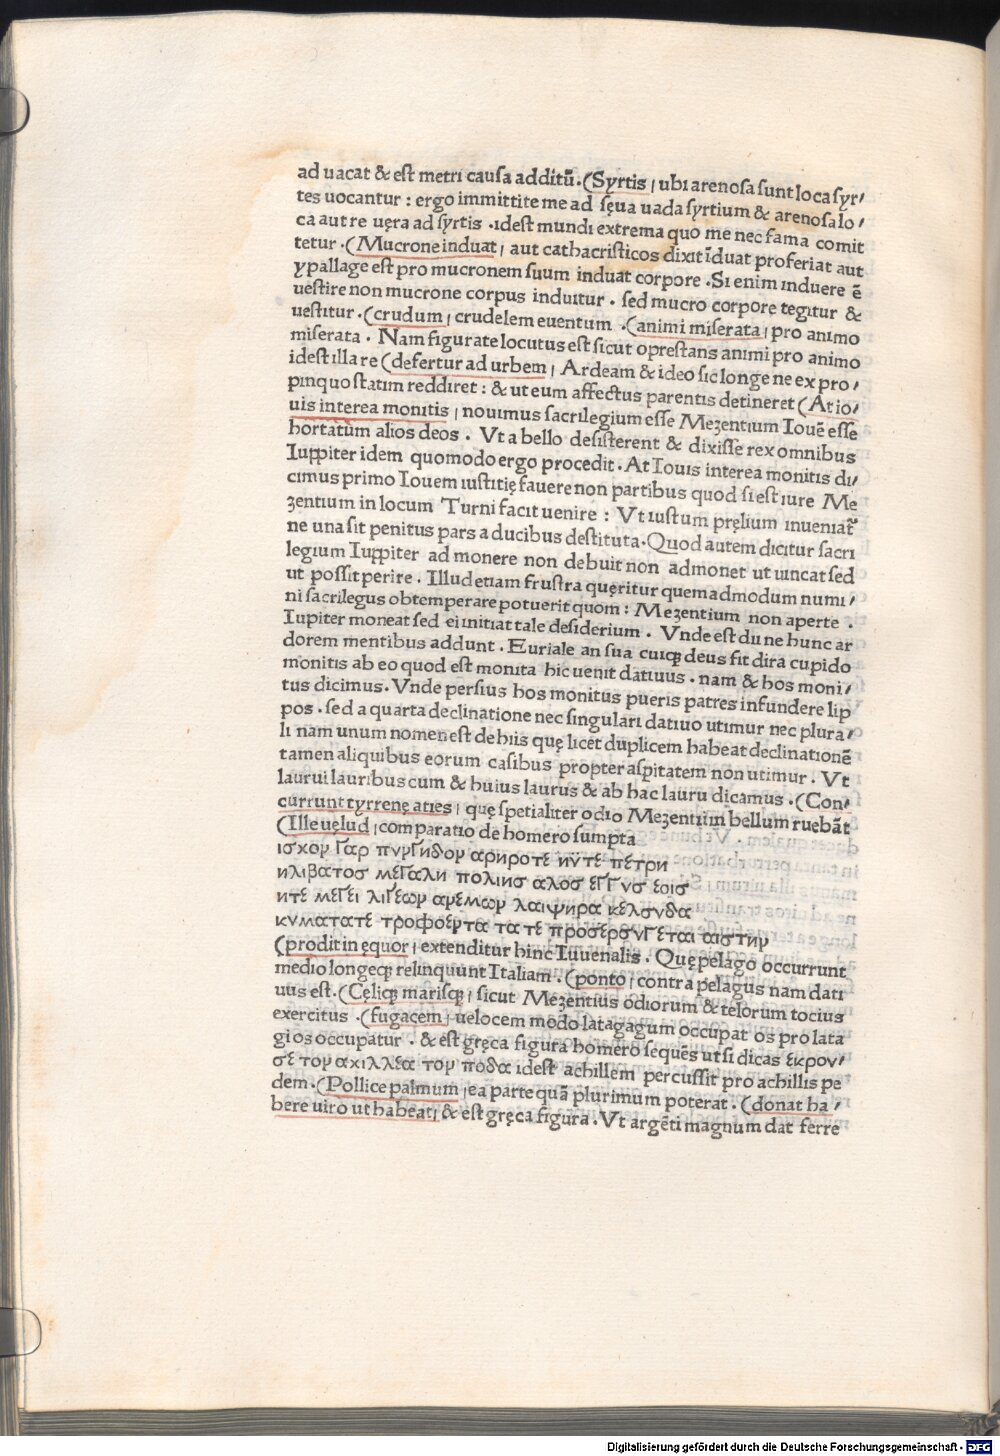 ad uacat & est metri causa additū. (Syrtis, ubi arenosa sunt loca syr/
tes uocantur : ergo immittite me ad sęua uada syrtium & arenosa lo/
ca aut re uęra ad syrtis . idest mundi extrema quo me nec fama comit
tetur . (Mucrone induat, aut cathacristicos dixit īduat pro feriat aut
ypallage est pro mucronem suum induat corpore . Si enim induere ē
uestire non mucrone corpus induitur . sed mucro corpore tegitur &
uestitur . (crudum, crudelem euentum . (animi miserata, pro animo
miserata . Nam figurate locutus est sicut o prestans animi pro animo
idest illa re (defertur ad urbem, Ardeam & ideo sic longe ne ex pro/
pinquo statim reddiret : & ut eum affectus parentis detineret (At io/
uis interea monitis, nouimus sacrilegium esse Mezentium Iouē esse
hortatum alios deos . Vt a bello desisterent & dixisse rex omnibus
Iuppiter idem quomodo ergo procedit . At Iouis interea monitis di/
cimus primo Iouem iustitię fauere non partibus quod si est iure Me
zentium in locum Turni facit uenire : Vt iustum pręlium inueniat̄
ne una sit penitus pars a ducibus destituta . Quod autem dicitur sacri
legium Iuppiter ad monere non debuit non admonet ut uincat sed
ut possit perire . Illud etiam frustra quęritur quemadmodum numi/
ni sacrilegus obtemperare potuerit quom : Mezentium non aperte .
Iupiter moneat sed ei initiat tale desiderium . Vnde est dii ne hunc ar
dorem mentibus addunt . Euriale an sua cuiqꝫ deus fit dira cupido
monitis ab eo quod est monita hic uenit datiuus . nam & hos moni/
tus dicimus . Vnde persius hos monitus pueris patres infundere lip
pos . sed a quarta declinatione nec singulari datiuo utimur nec plura/
li nam unum nomen est de hiis quę licet duplicem habeat declinationē
tamen aliquibus eorum casibus propter aspitatem non utimur . Vt
laurui lauribus cum & huius laurus & ab hac lauru dicamus . (Con/
currunt tyrrenę aties, quę spetialiter odio Mezentium bellum ruebāt
(Ille uęlud, comparatio de homero sumpta
ισχον γαρ πυργηδον αρηροτε ηυτε πετρη
ηλιβατοσ μεγαλη πολιησ αλοσ εγγυσ εοισ
ητε μεγει λιγεων ανεμων λαιψηρα κελουδα
κυματατε τροφοεντα τα τε προσερουγεται αιστην
(prodit in ęquor, extenditur hinc Iuuenalis . Quę pelago occurrunt
medio longeqꝫ relinquunt Italiam . (ponto, contra pelagus nam dati
uus est . (Cęliqꝫ marisqꝫ, sicut Mezentius odiorum & telorum tocius
exercitus . (fugacem, uelocem modo latagagum occupat os pro lata
gi os occupatur . & est gręca figura homero sequēs ut si dicas εκρου/
σε τον αχιλλεα τον ποδα idest achillem percussit pro achillis pe
dem . (Pollice palmum, ea parte quā plurimum poterat . (donat ha/
bere uiro ut habeat, & est gręca figura . Vt argēti magnum dat ferre
Digitalisierung gefördert durch die Deutsche Forschungsgemeinschaft - DFG